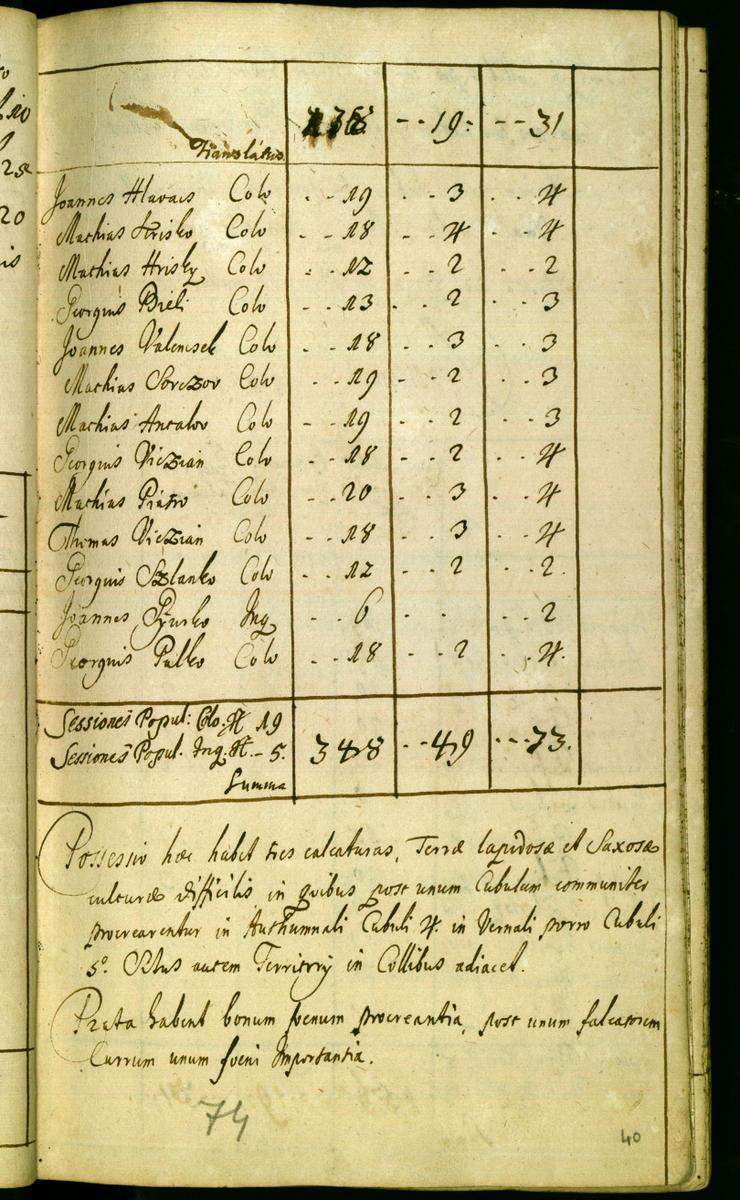 Translatus 138 - - 19 - - - 31
Joannes Hlavacs Colo - - 19 - - 3 - - 4
Mathias Krisko Colo - - 18 - - 4 - - 4
Mathias Hrisky Colo - - 12 - - 2 - - 2
Georgius Bieli Colo - - 13 - - 2 - - 3
Joannes Valencsek Colo - - 18 - - 3 - - 3
Mathias Colo - - 19 - - 2 - - 3
Mathias Antalov Colo - - 19 - - 2 - - 3
Georgius Viczian Colo - - 18 - - 2 - - 4
Mathias Colo - - 20 - - 3 - - 4
Thomas Viczian Colo - - 18 - - 3 - - 4
Georgius Szlanko Colo - - 12 - - 2 - - 2.
Joannes Inq - - 6 - - - - 2
Georgius Palko Colo - - 18 - - 2 - - 4.
Sessiones Popul: Colo. 19
Sessiones Popul. Inq. - 5.
Summa 348 - - 49 - - - 73.
Possessio hæc habet tres calcaturas, Terræ lapidosæ et Saxosæ
culturæ difficilis in quibus post unum Cubulum communiter
procrearentur in Authumnali Cubuli 4. in Vernali porro Cubuli
5. Situs autem Territorij in Collibus adiacet.
Prata habent bonum foenum procreantia, post unum falcatorem
Currum unum foeni Importantia.
74
40